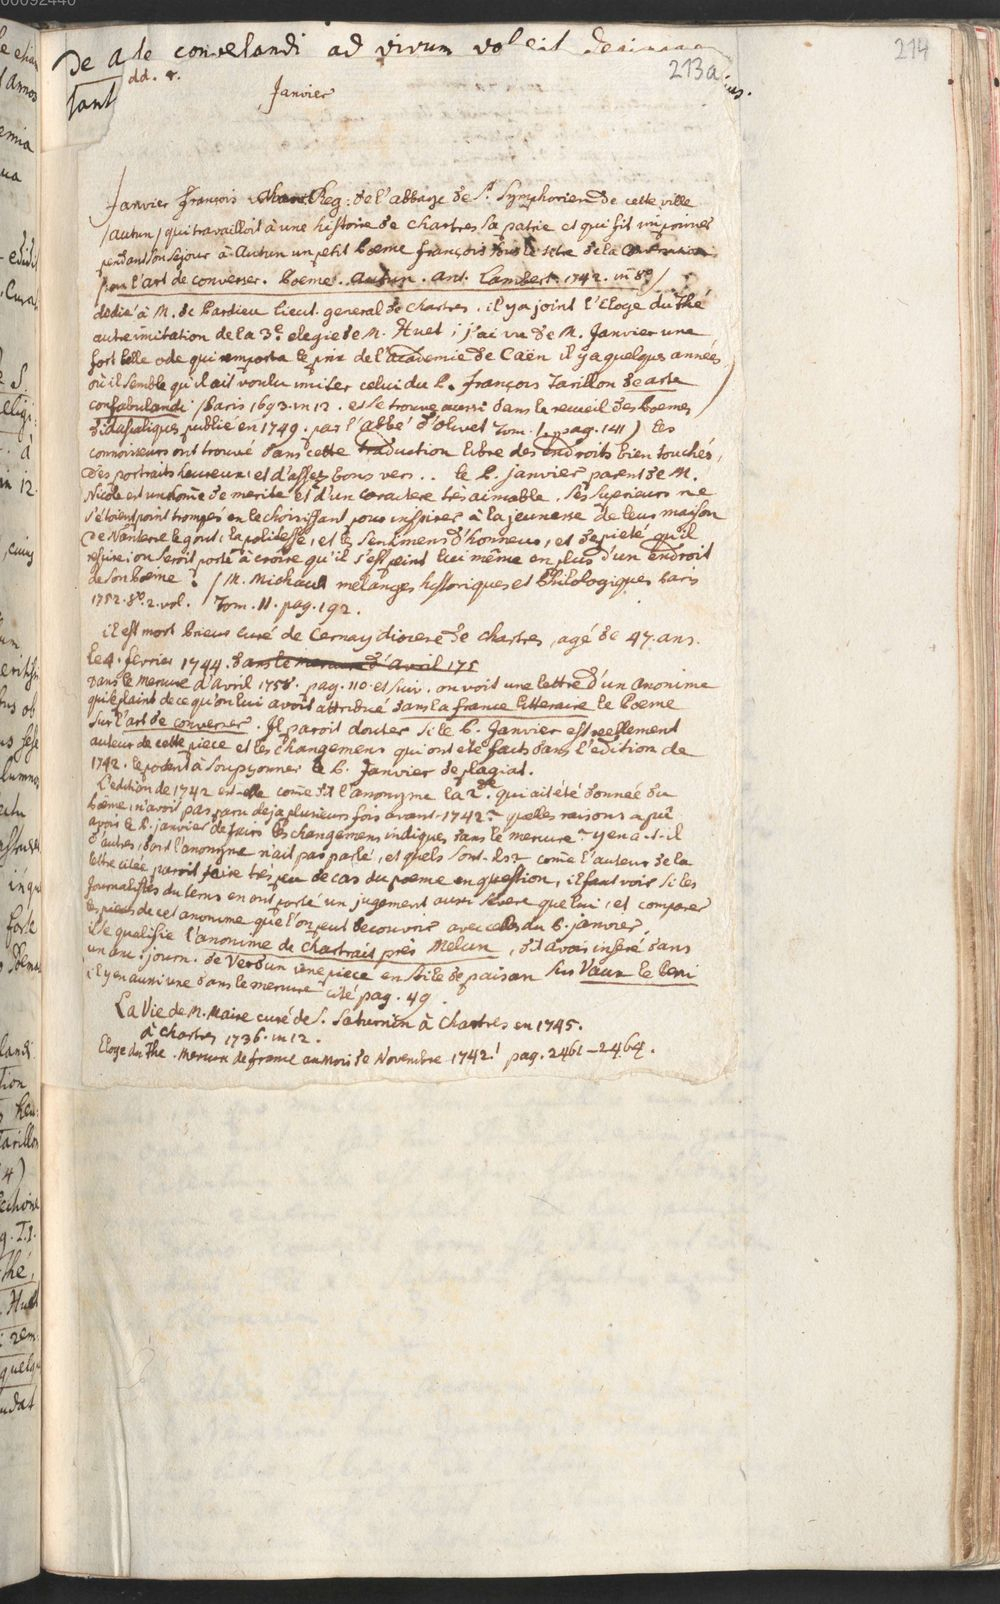 214
De a te convelandi ad vivum
213a
dd. r.
tant
Janvier
Janvier françois Reg: de l'abbaye de St. Symphorien de cette ville
/autun/ qui travailloit à une histoire de chartres sa patrie et qui fit imprimer
pendant son sejour à Autun un petit Poeme françois sous le titre de la Conversation
l'art de converser. Poeme. Autun. Ant. Lambert. 1742. in 8º/
dédié à M. de Pardieu lieut. general de chartres. il y a joint l'Eloge du Thé
autre imitation de la 3e. elegie de M. Huet; j'ai vu de M. Janvier une
fort belle ode qui remporta le prix de l'academie de Caën il y a quelques années
où il semble qu'il ait voulu imiter celui du P. François Tarillon de arte
confabulandi /Paris 1693. in 12. et se trouve aussi dans le recueil des Poemes
didascaliques publié en 1749. par l'abbé d'olivet Tom. 1. pag. 141) les
connoisseurs ont trouvé dans cette traduction libre des endroits bien touchés,
Des portraits heureux et d'assez bons vers.. le P. janvier parent de M.
Nicole est un home de merite et d'un caractere très aimable. Ses superieurs ne
s'étoient point trompés en le choisissant pour inspirer à la jeunesse de leur maison
de Nanterre le gout, la politesse, et les sentimens d'honneur, et de pieté qu'il
respire; on seroit porté à croire qu'il s'est peint lui même en plus d'un endroit
de son Poeme? / M. Michault mélanges historiques et Philologiques Paris
1752. 8º. 2. vol. / Tom. II. pag. 192.
il est mort Prieur curé de Cernay diocese de chartres, agé de 47. ans.
le 4. fevrier 1744. dans le mercure d'Avril 175
Dans le Mercure d'Avril 1758. pag. 110. et suiv. on voit une lettre d'un Anonime
qui se plaint de ce qu'on lui avoit attribué dans la france litteraire le Poeme
sur l'art de converser. Il paroit douter si le P. Janvier est reellement
auteur de cette piece et les changemens qui ont été faits dans l'edition de
1742. le portent à soupçonner le P. Janvier de plagiat.
L'edition de 1742 est-elle come dit l'anonyme la 2de. qui ait été donnée du
Poëme, n'avoit pas paru deja plusieurs fois avant 1742? quelles raisons a pû
avoir le P. janvier de faire les changemens indiqués dans le mercure? y en a-t-il
d'autres, dont l'anonyme n'ait pas parlé, et quels sont-ils? come l'auteur de la
lettre citée paroit faire très peu de cas du poeme en question, il faut voir si les
Journalistes du tems en ont porté un jugement aussi severe que lui, et comparer
les pieces de cet anonime que l'on peut decouvrir avec celles du P. janvier.
Il se qualifie l'anonime de chartrait près Melun, dit avoir inseré dans
un anc. journ. de Verdun une piece en stile de paisan sur Vaux le Peni
il y en a aussi une dans le mercure cité pag. 49.
La Vie de M. Maire curé de S. Saturnin à Chartres en 1745.
à chartres 1736. in 12.
Eloge du Thé. Mercure de france au mois de Novembre 1742. pag. 2461-2464.